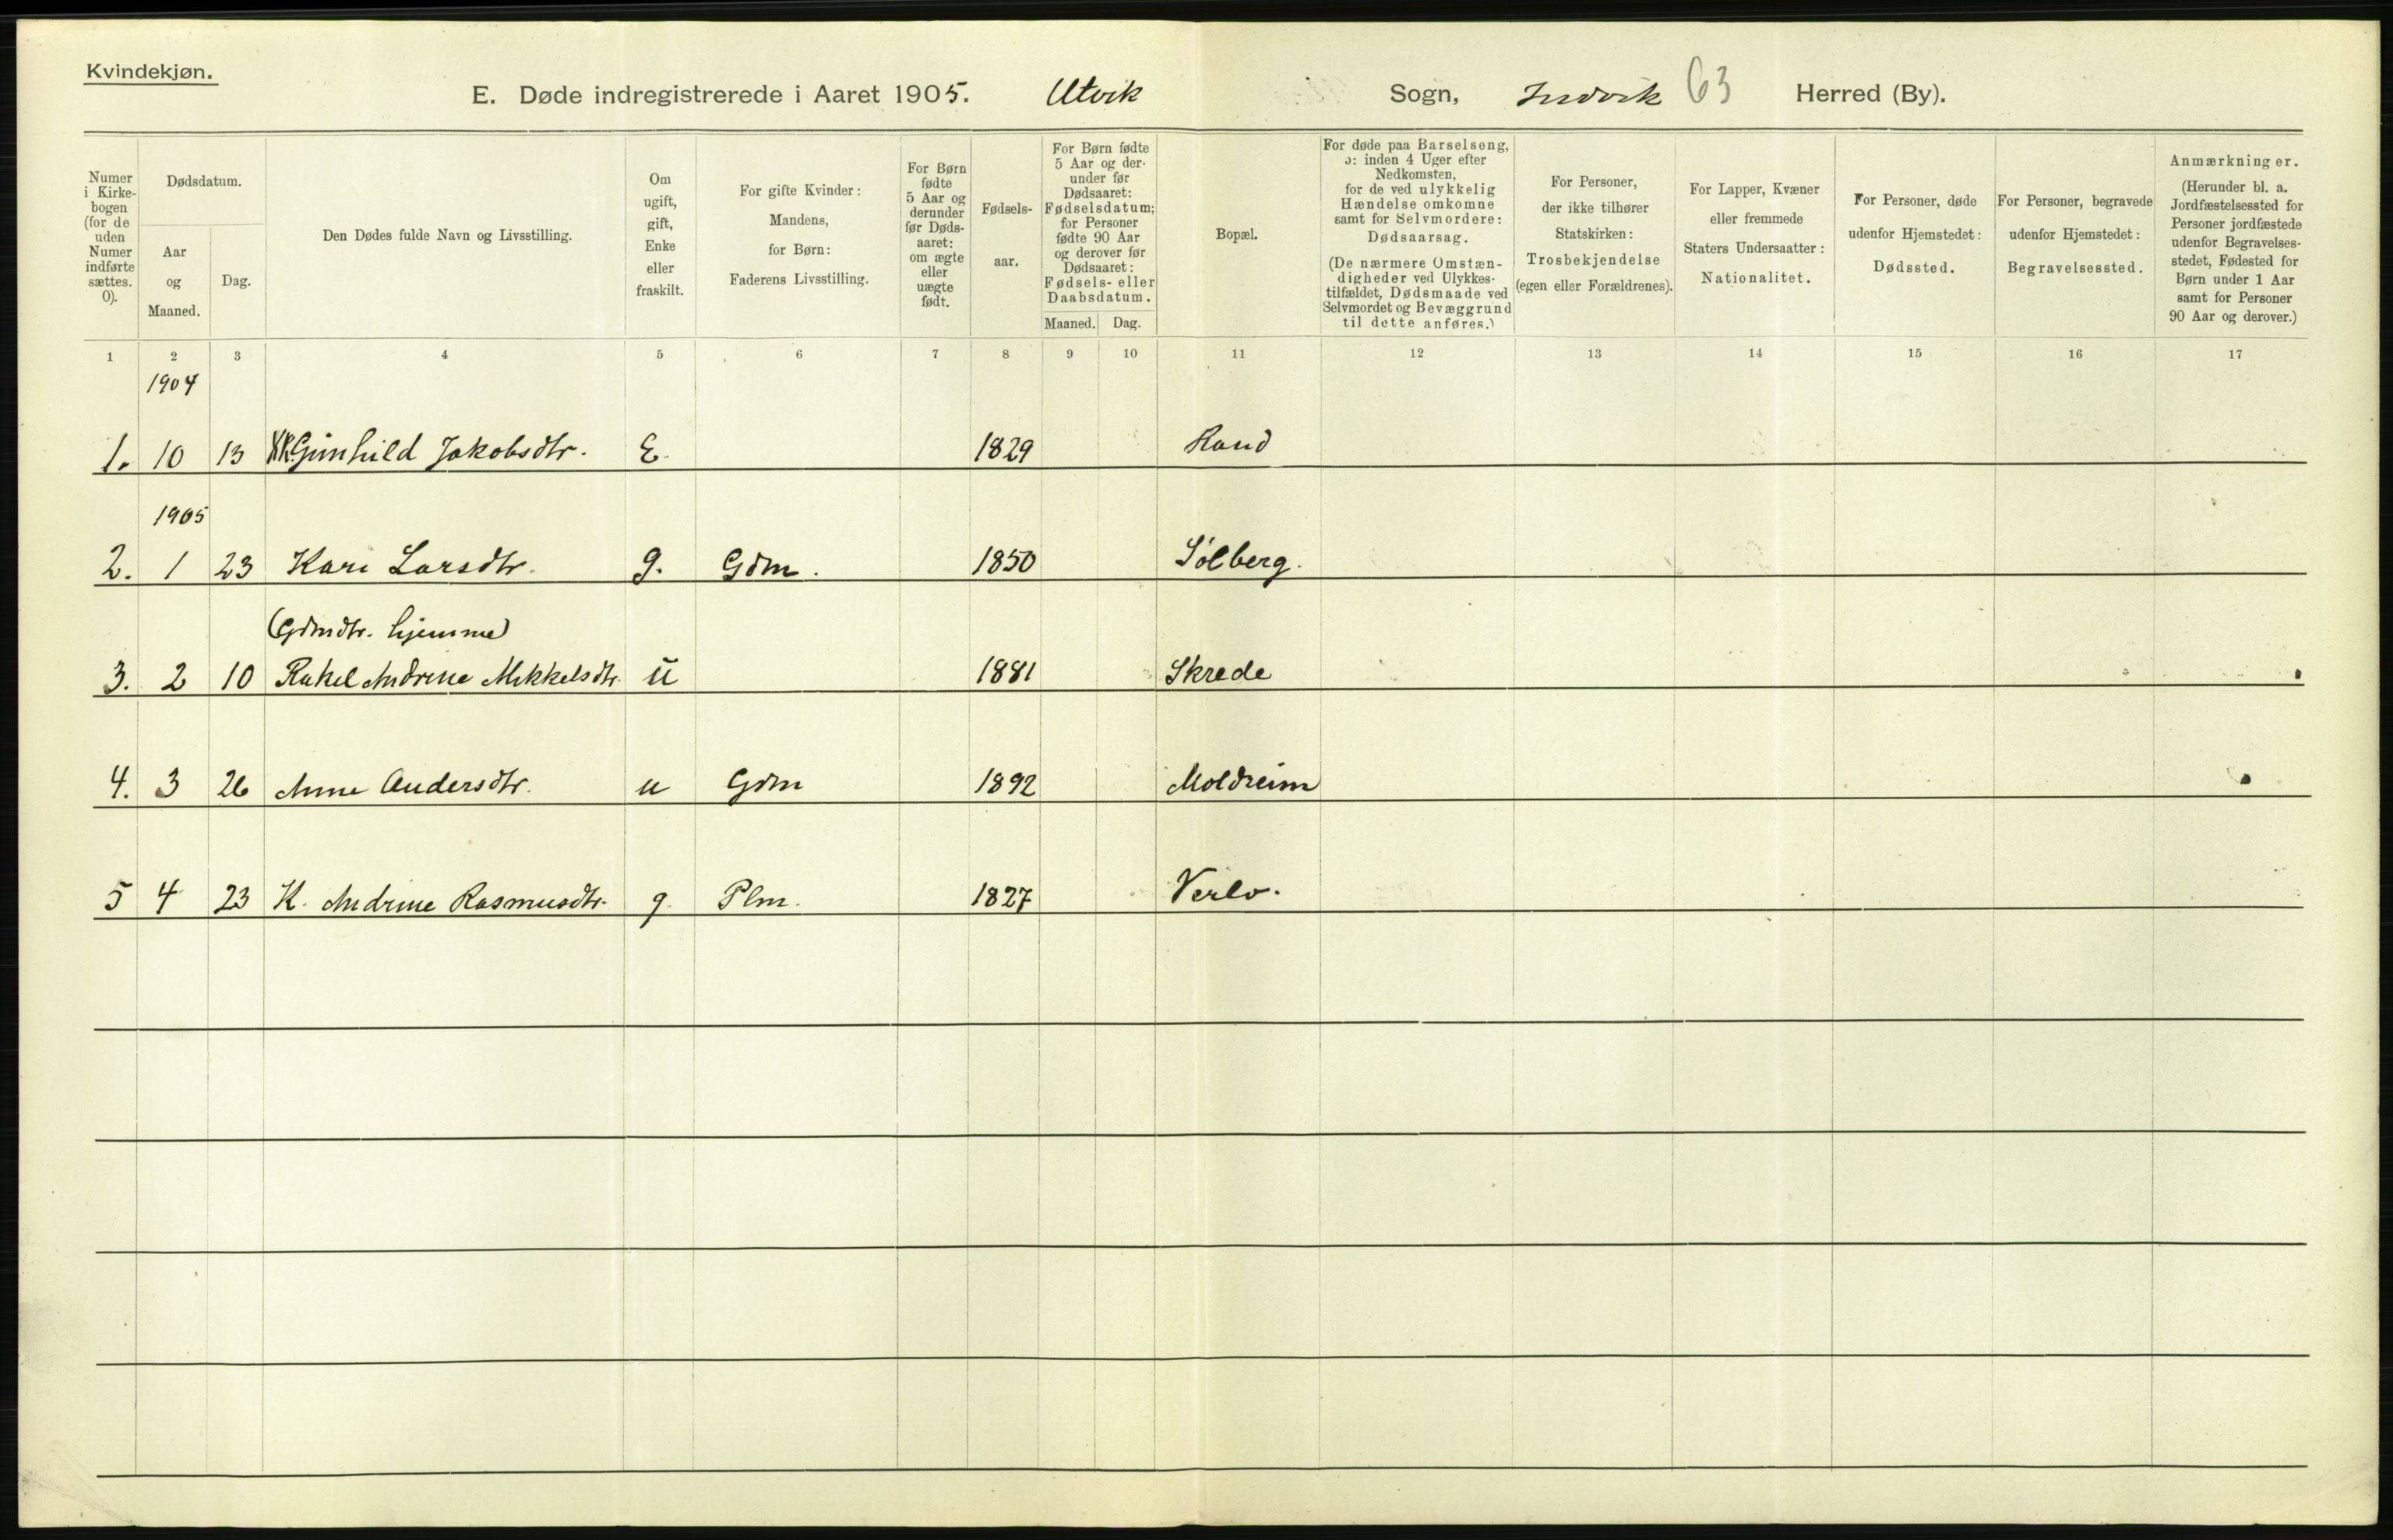 Kvindekjøn.
E. Døde indregistrerede i Aaret 1905. Utvik Sogn, Indvik 63 Herred (By).
Numer i Kirke-bogen (for de uden Numer indførte sættes. 0).
Dødsdatum.
Aar og Maaned.
Dag.
Den Dødes fulde Navn og Livsstilling.
Om ugift, gift, Enke eller fraskilt.
For gifte Kvinder: Mandens, for Børn: Faderens Livsstilling.
For Børn fødte 5 Aar og derunder før Døds-aaret: om ægte eller uægte født.
Fødsels-aar.
For Børn fødte 5 Aar og der-under før Dødsaaret: Fødselsdatum; for Personer fødte 90 Aar og derover før Dødsaaret: Fødsels- eller Daabsdatum.
Maaned. Dag.
Bopæl.
For døde paa Barselseng, ɔ: inden 4 Uger efter Nedkomsten, for de ved ulykkelig Hændelse omkomne samt for Selvmordere: Dødsaarsag. (De nærmere Omstæn-digheder ved Ulykkes-tilfældet, Dødsmaade ved Selvmordet og Bevæggrund til dette anføres.)
For Personer, der ikke tilhører Statskirken: Trosbekjendelse (egen eller Forældrenes).
For Lapper, Kvæner eller fremmede Staters Undersaatter: Nationalitet.
For Personer, døde udenfor Hjemstedet: Dødssted.
For Personer, begravede udenfor Hjemstedet: Begravelsessted.
Anmærkninger. (Herunder bl. a. Jordfæstelsessted for Personer jordfæstede udenfor Begravelses-stedet, Fødested for Børn under 1 Aar samt for Personer 90 Aar og derover.)
1 2 3 4 5 6 7 8 9 10 11 12 13 14 15 16 17
1904
1. 10 13 Gunhild Jakobsdtr. E. 1829 Rand
1905
2. 1 23 Kari Larsdtr. g. Gdm. 1850 Sølberg.
(Gdmdtr. hjemme)
3. 2 10 Rakel Andrine Mikkelsdtr. u 1881 Skrede
4. 3 26 Anne Andersdtr. u Gdm 1892 Moldreim
5 4 23 K. Andrine Rasmusdtr. g. Plm. 1827 Verlo.